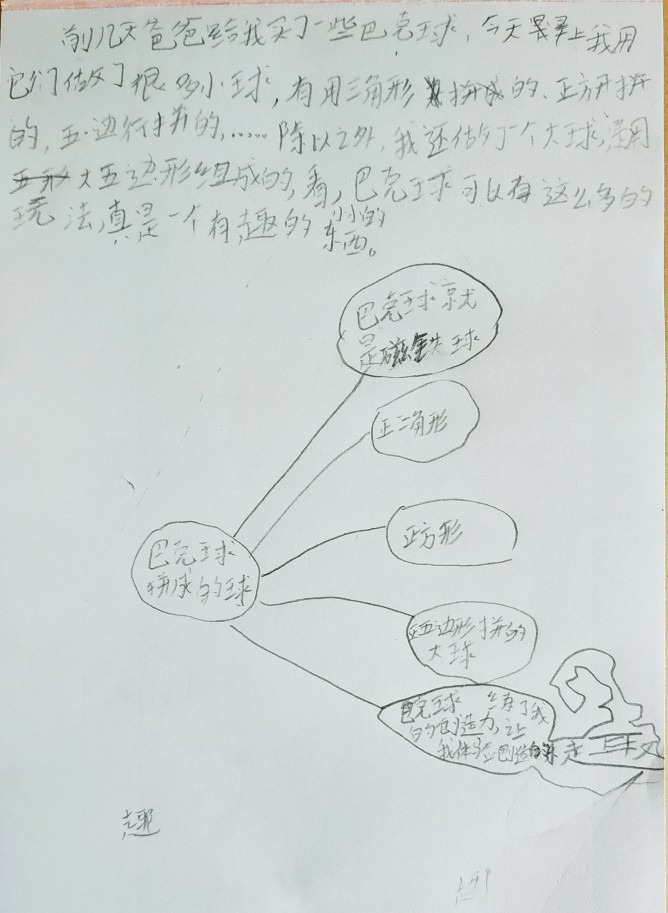 前几天爸爸给我买了一些巴克球，今天早上我用
它们做了很多小球，有用三角形拼成的、正方形拼
的，五边形拼的，……除以之外，我还做了一个大球，是用
大五边形组成的，看，巴克球可以有这么多的
玩法，真是一个有趣的小小的
东西。
巴克球就
是磁铁球
正三角形
正方形
巴克球
拼成的球
正五边形拼的
大球
巴克球 了我
的创造力，让
我体验创造的
趣